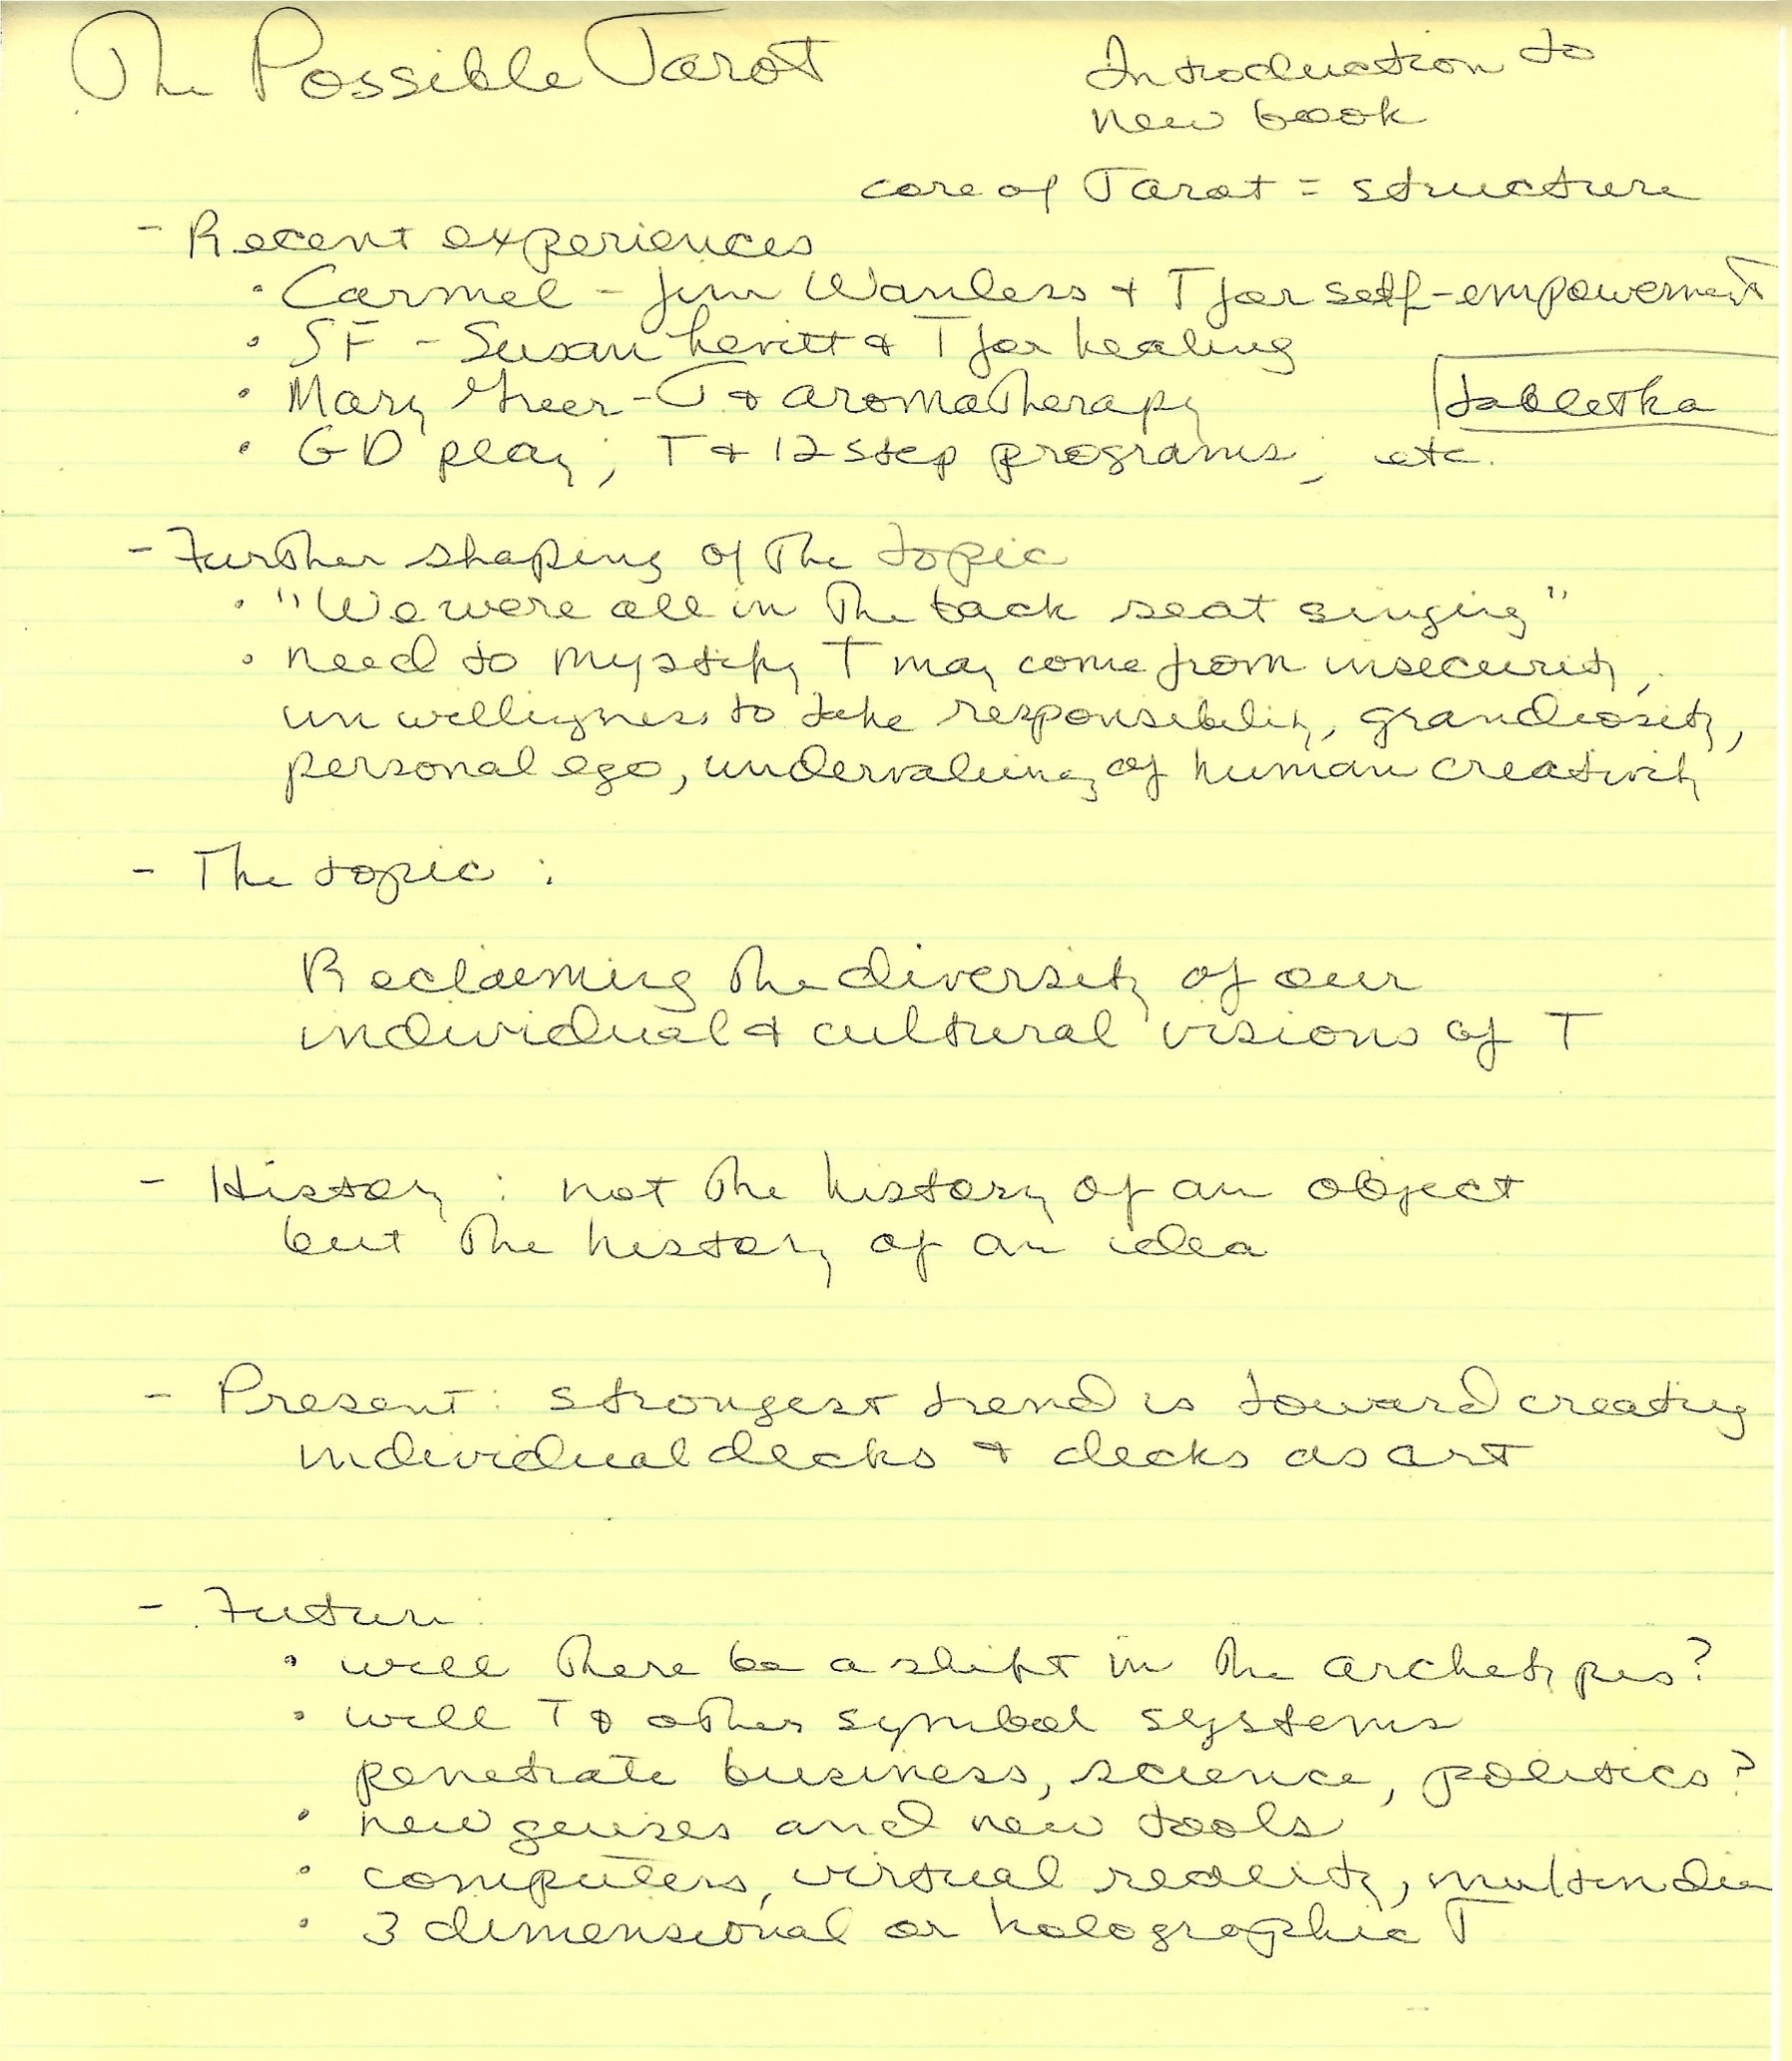 The Possible Tarot
Introduction to
new book
core of Tarot = structure
- Recent experiences
• Carmel - Jim Wanless & T for self-empowerment
• SF - Susan Levitt & T for healing
• Mary Greer - T & aromatherapy
tabletka
• GD play; T & 12 step programs, etc.
- Further shaping of the topic
• "We were all in the back seat singing"
• need to mystify T may come from insecurity,
unwillingness to take responsibility, grandiosity,
personal ego, undervaluing of human creativity
- The topic :
Reclaiming the diversity of our
individual & cultural visions of T
- History : not the history of an object
but the history of an idea
- Present: strongest trend is toward creating
individual decks & decks as art
- Future:
• will there be a shift in the archetypes?
• will T & other symbol systems
penetrate business, science, politics?
• new guises and new tools
• computers, virtual reality, multimedia
• 3 dimensional or holographic T